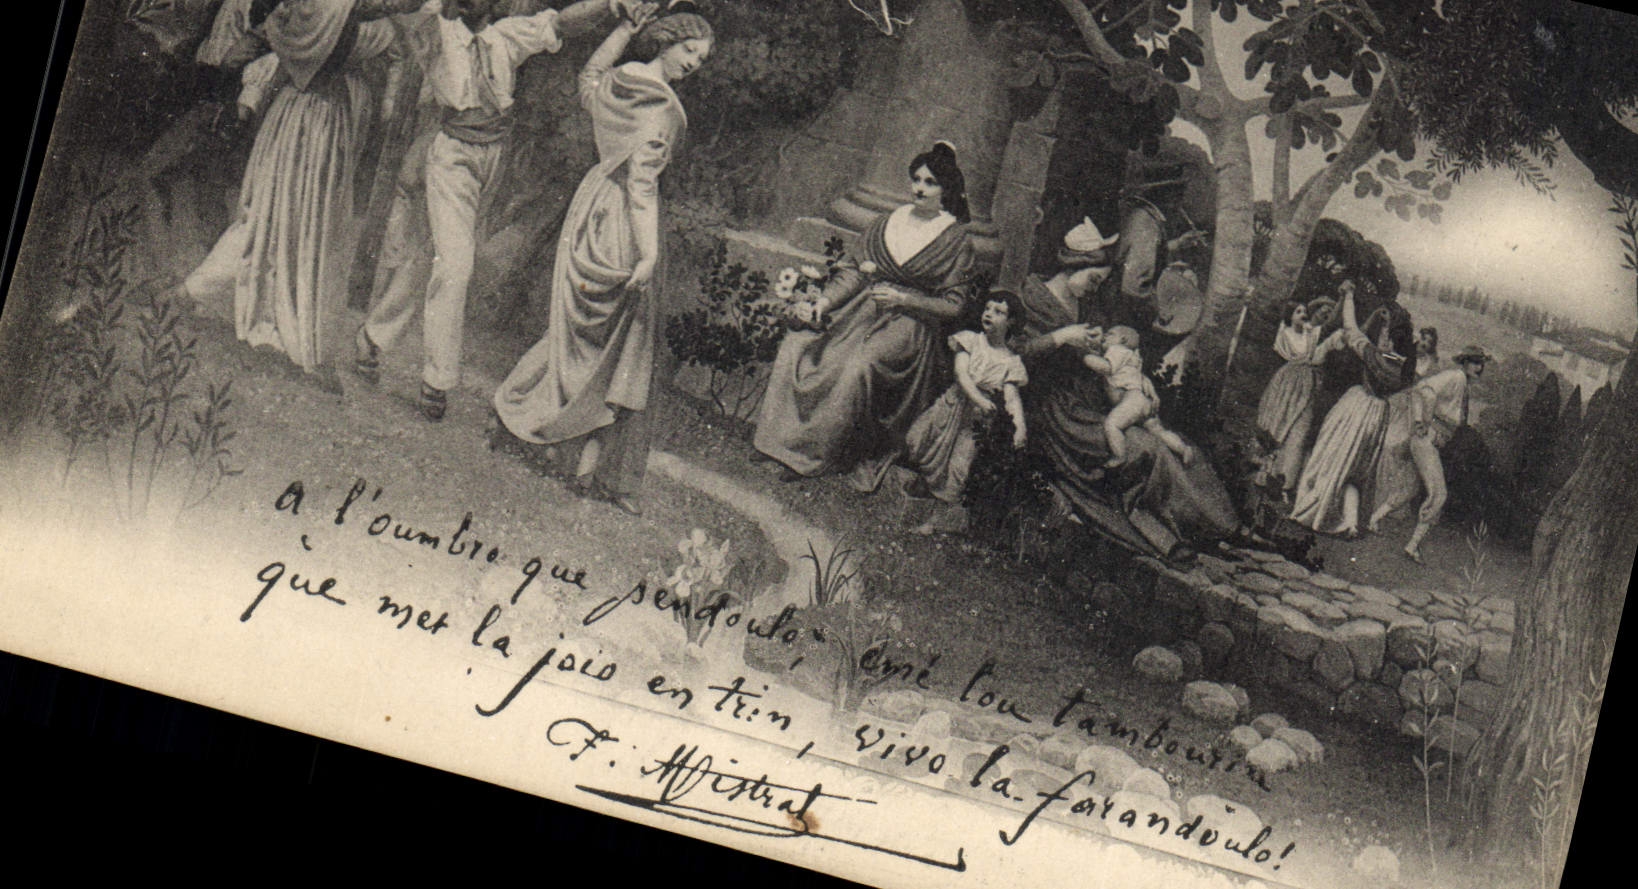 A l'oumbro que pendoulo, emé lou tambourin
què met la joio en trin, vivo la farandoulo!
F. Mistral